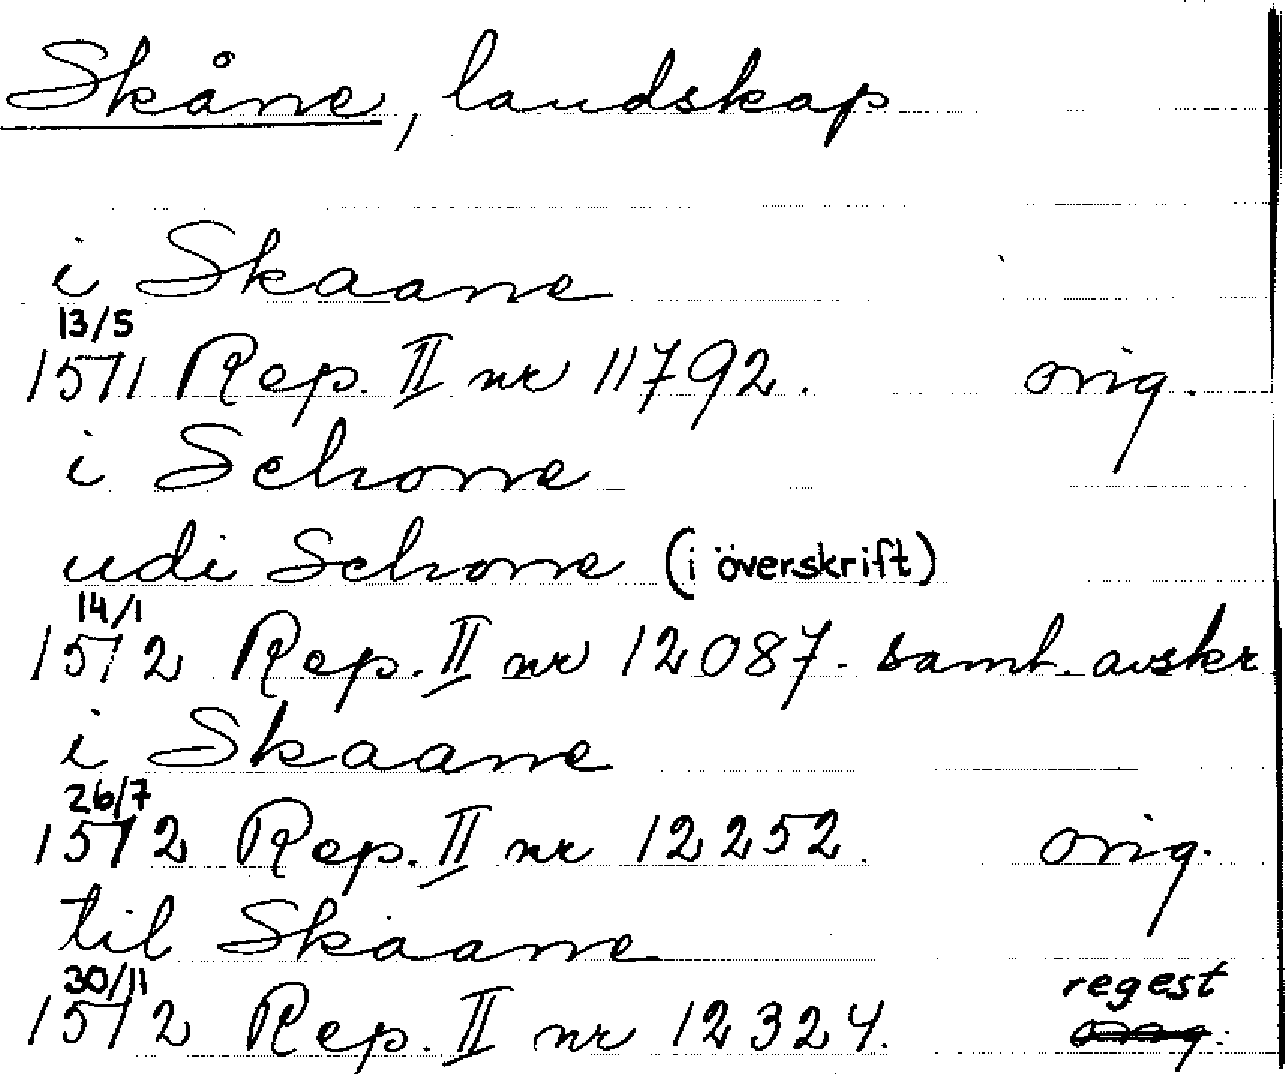 Skåne, landskap
i Skaane
13/5
1571 Rep. II nr 11792. orig.
i Schone
udi Schone (i överskrift)
14/1
1572 Rep. II nr 12087. samt. avskr
i Skaane
26/7
1572 Rep. II nr 12252. orig.
til Skaane
30/11 regest
1572 Rep. II nr 12324. orig.